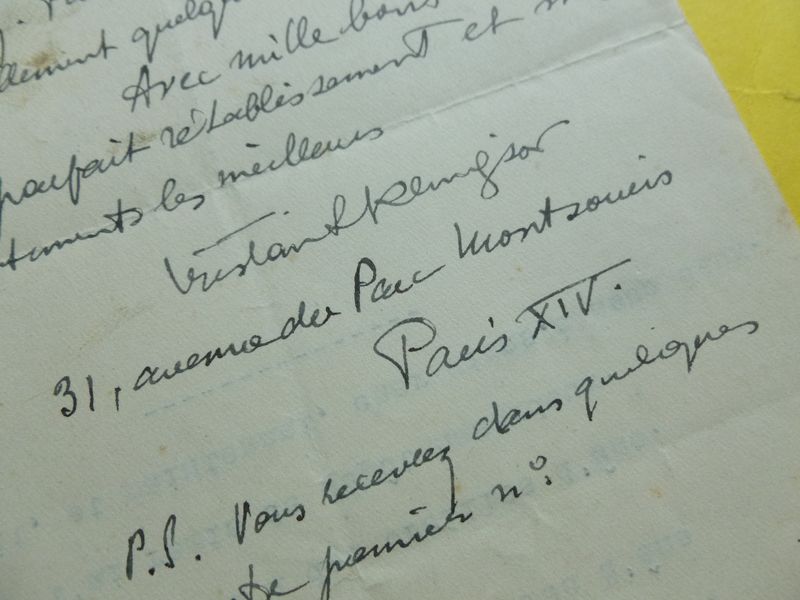 dement quelque
Avec mille bons
parfait rétablissement et
timents les meilleurs
Tristan Klingsor
31, avenue du Parc Montsouris
Paris XIV.
P.S. Vous recevrez dans quelques
premier n°.